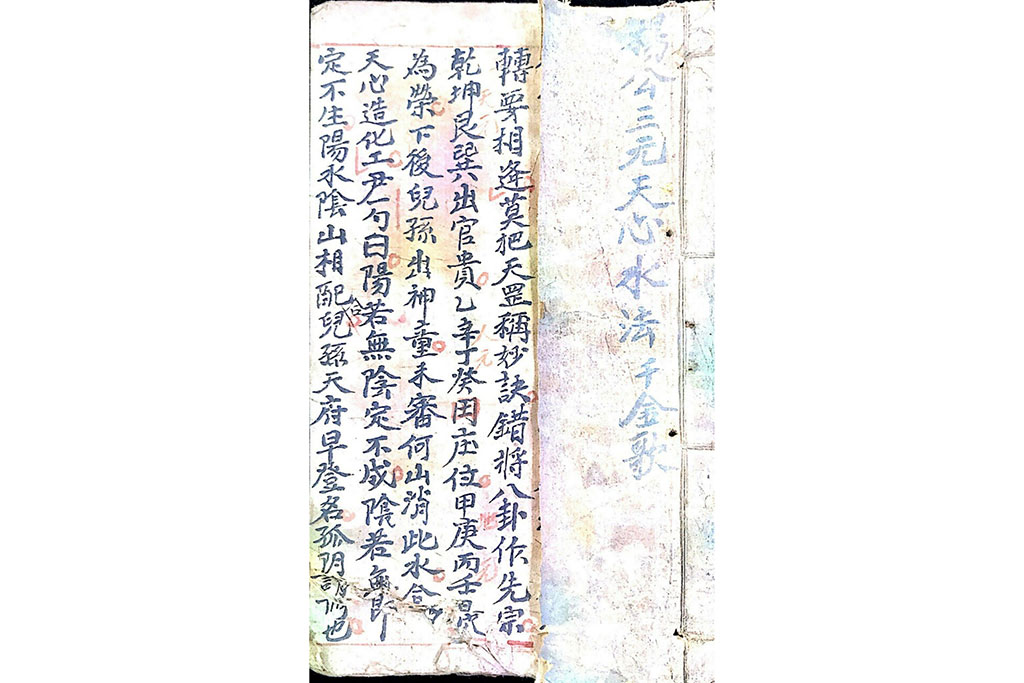 楊公三元天心水法千金歌
轉要相逢莫把天罡稱妙訣錯將八卦作先宗
乾坤艮巽出官貴乙辛丁癸田庄位甲庚丙壬
為榮下後兒孫出神童未審何山消此水合
天心造化工尹一勺曰陽若無陰定不成陰若無即
定不生陽水陰山相配合兒孫天府早登名孤阴